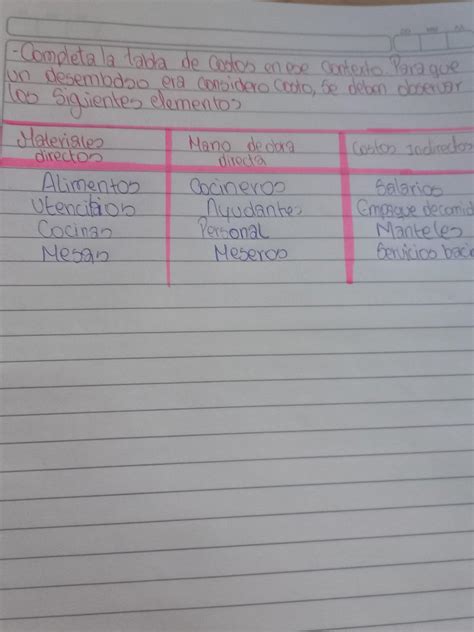 -Completa la tabla de Costos en ese contexto. Para que
un desembolso era considero Costo, se deben observar
los Sigientes elementos
Materiales directos	Mano de obra directa	Costos Indirectos
Alimentos	Cocineros	Salarios
Utencilios	Ayudantes	Empaque de comid
Cocinas	Personal	Manteles
Mesas	Meseros	Servicios basic